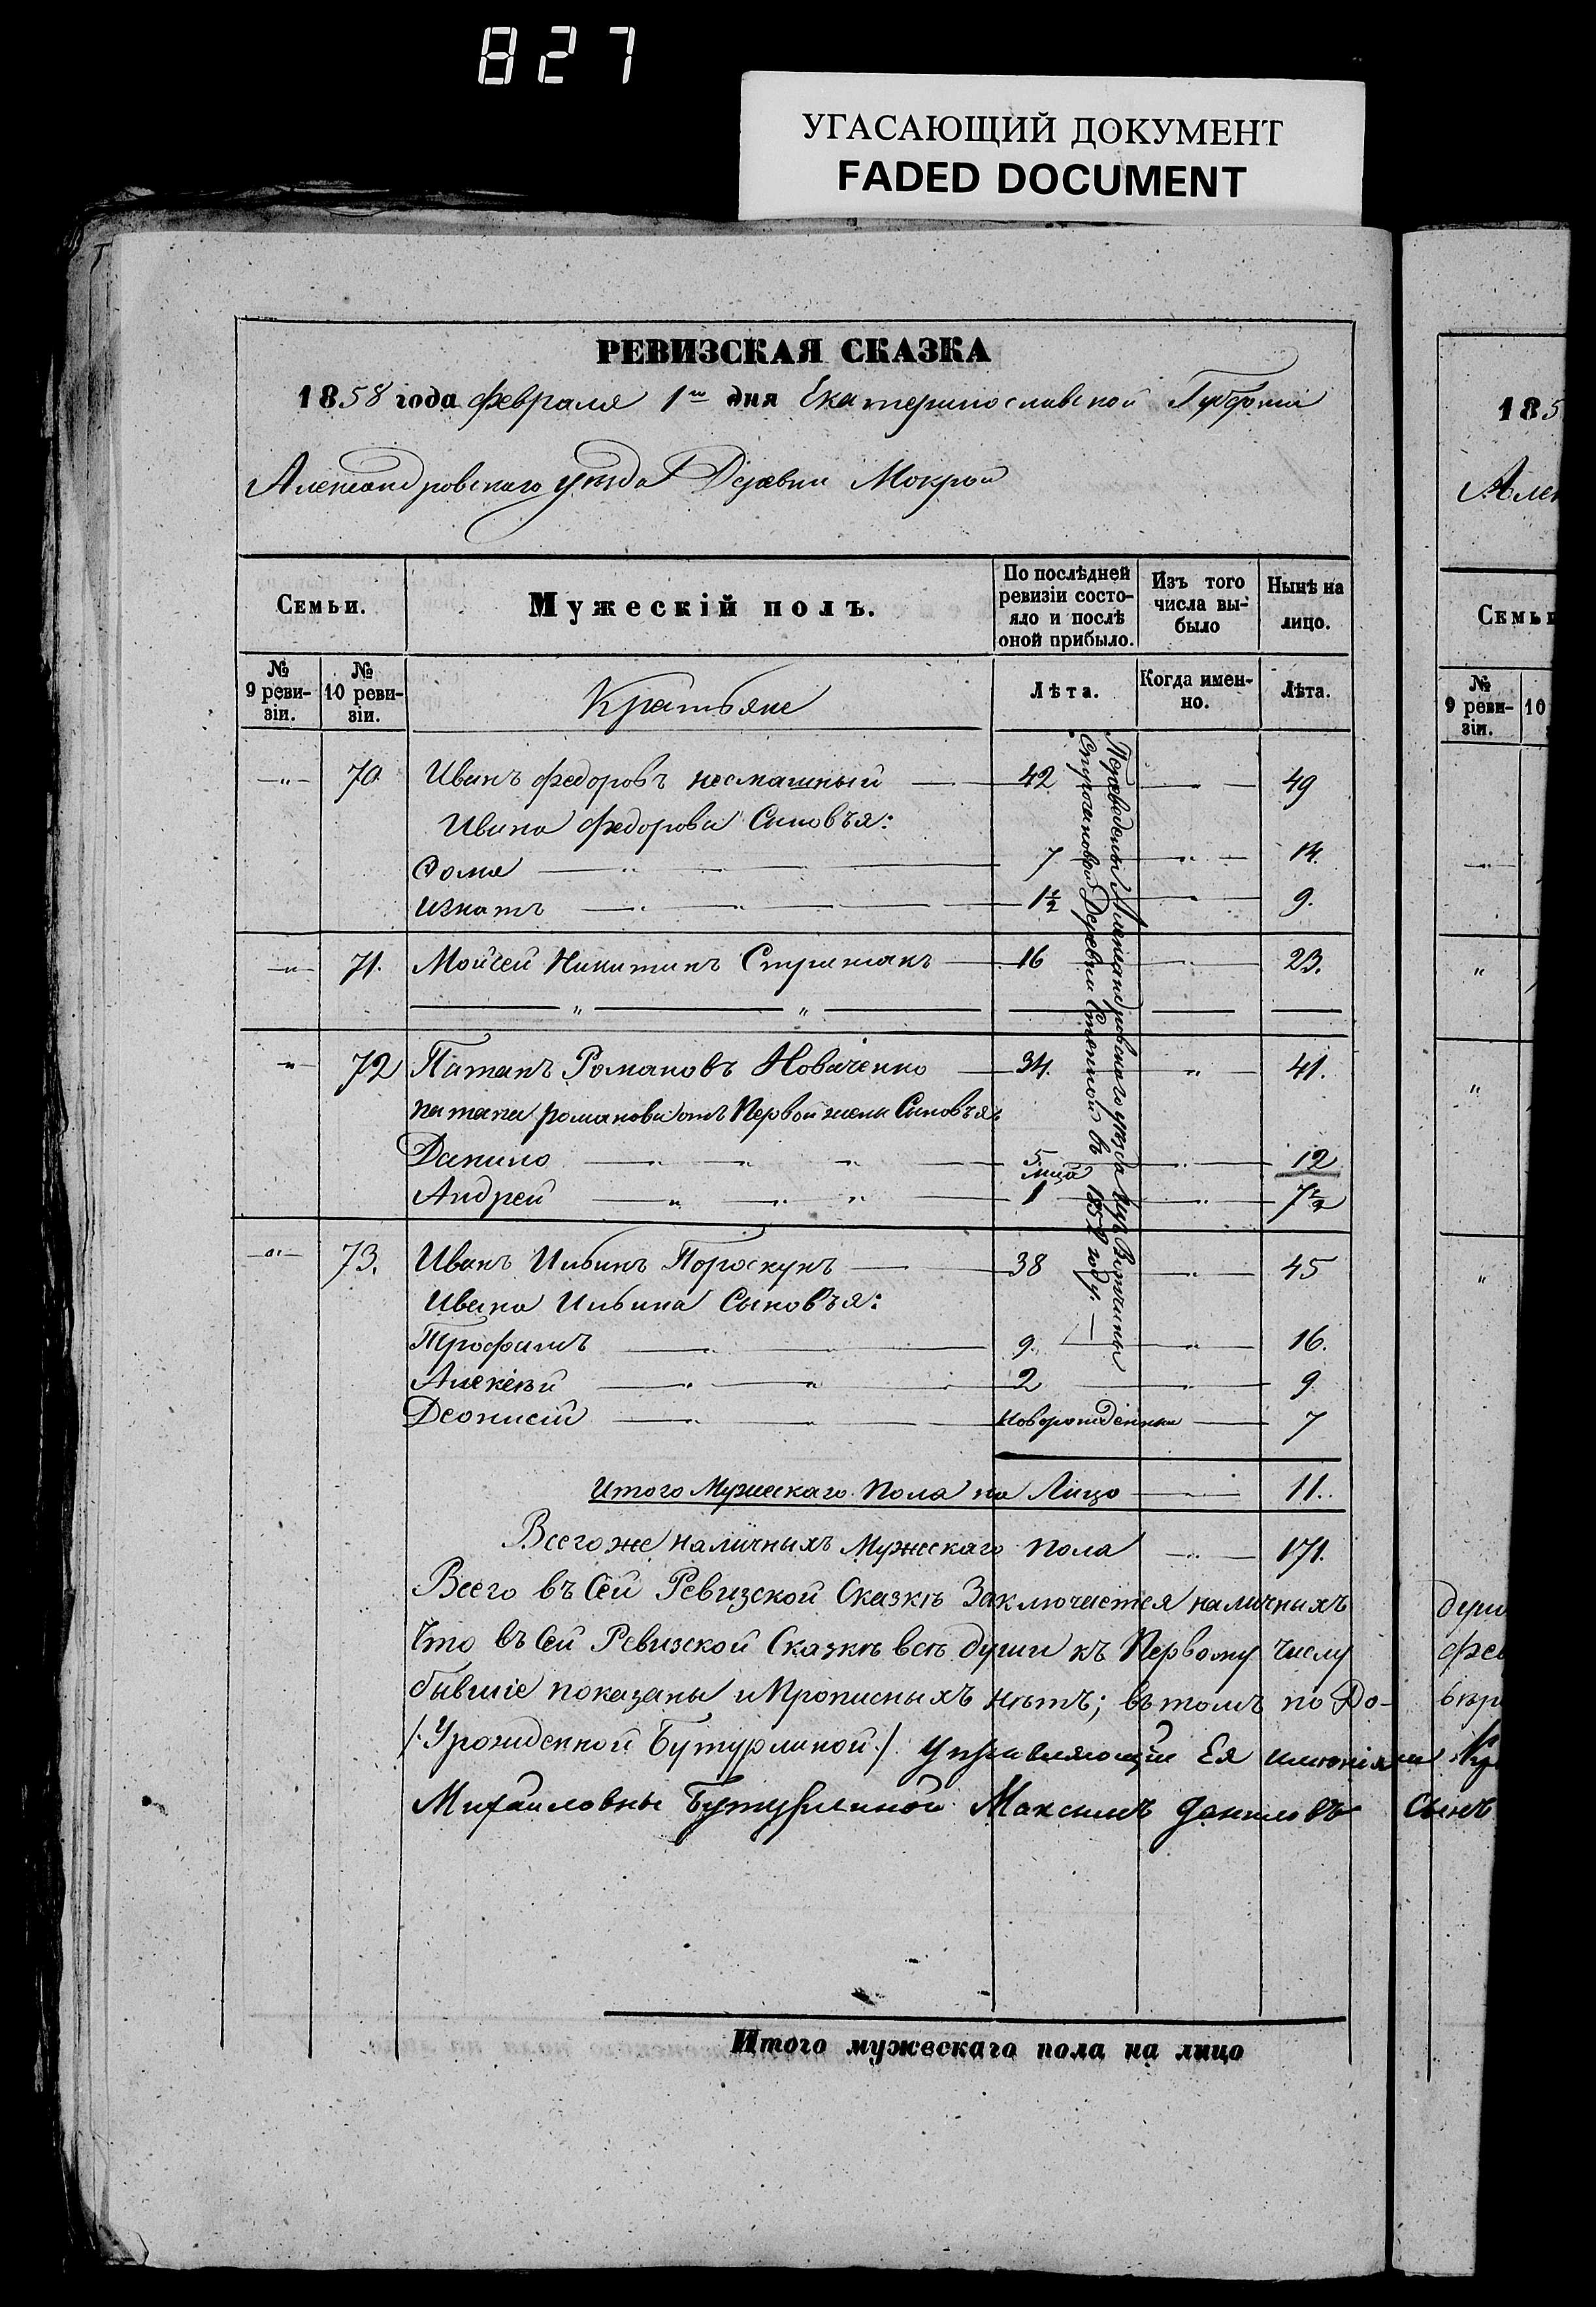 827
УГАСАЮЩИЙ ДОКУМЕНТ
FADED DOCUMENT
РЕВИЗСКАЯ СКАЗКА
1858 года февраля 1го дня Екатеринославской Губернии
Александровского уѣзда Деревни Мокрой
Семьи.
Мужескій полъ.
По послѣдней ревизіи состояло и послѣ оной прибыло.
Изъ того числа выбыло
Нынѣ на лицо.
№ 9 ревизіи.
№ 10 ревизіи.
Крестьяне
Лѣта.
Когда именно.
Лѣта.
— " — 70 Иванъ Федоровъ несмашный — 42 — " — 49
Ивана Федорова Сыновъя:
Фома — " — 7 — " — 14.
Игнатъ — " — " — 1½ — " — 9.
— " — 71. Мойсей Никитинъ Стрижакъ — 16 — " — 23.
— " — 72 Патапъ Романовъ Новаченко — 34. — " — 41.
патапа романова отъ Первой жены Сыновъя
Данило — " — " — " — 5. — " — 12
Андрей — " — " — " — 1 мѣца — " — 7½
— " — 73. Иванъ Ильинъ Пороскунъ — 38 — " — 45
Ивана Ильина Сыновъя:
Трофимъ — " — 9. — " — 16.
Алексѣй — " — " — 2 — " — 9
Деонисій — " — " — новорожденный — 7
Переведены Александровскаго уѣзда изъ Вотчины
Строгановой Деревни Степной въ 1852 году. —
Итого Мужескаго Пола на Лицо — 11.
Всего же наличныхъ Мужескаго пола — " — 171.
Всего въ Сей Ревизской Сказкѣ Заключается наличныхъ
Что въ Сей Ревизской Сказкѣ всѣ души къ Первому числу
бывшіе показаны и Прописныхъ нѣтъ; въ томъ по До-
/Урожденной Бутурлиной/ Управляющій Ея имѣніями
Михайловны Бутурлиной Максимъ Даниловъ Сынъ
Итого мужескаго пола на лицо
185
Семьи
№ 9 ревизіи.
10